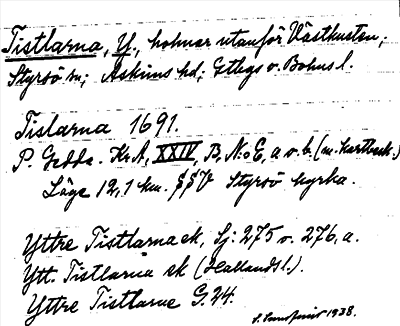 Tistlarna, Y., holmar utanför Västkusten;
Styrsö sn; Askims hd; Gtbgs o. Bohus l.
Tislarna 1691.
P. Gedda. Kr.A, XXIV, B, N:o 6, a o. b. (m. kartbeck.)
Läge 12,1 km. SSV Styrsö kyrka.
Yttre Tistlarna ek, Sj: 275 o. 276, a.
Ytt. Tistlarna sk (Hallands l.).
Yttre Tistlarne G. 24.
1938.